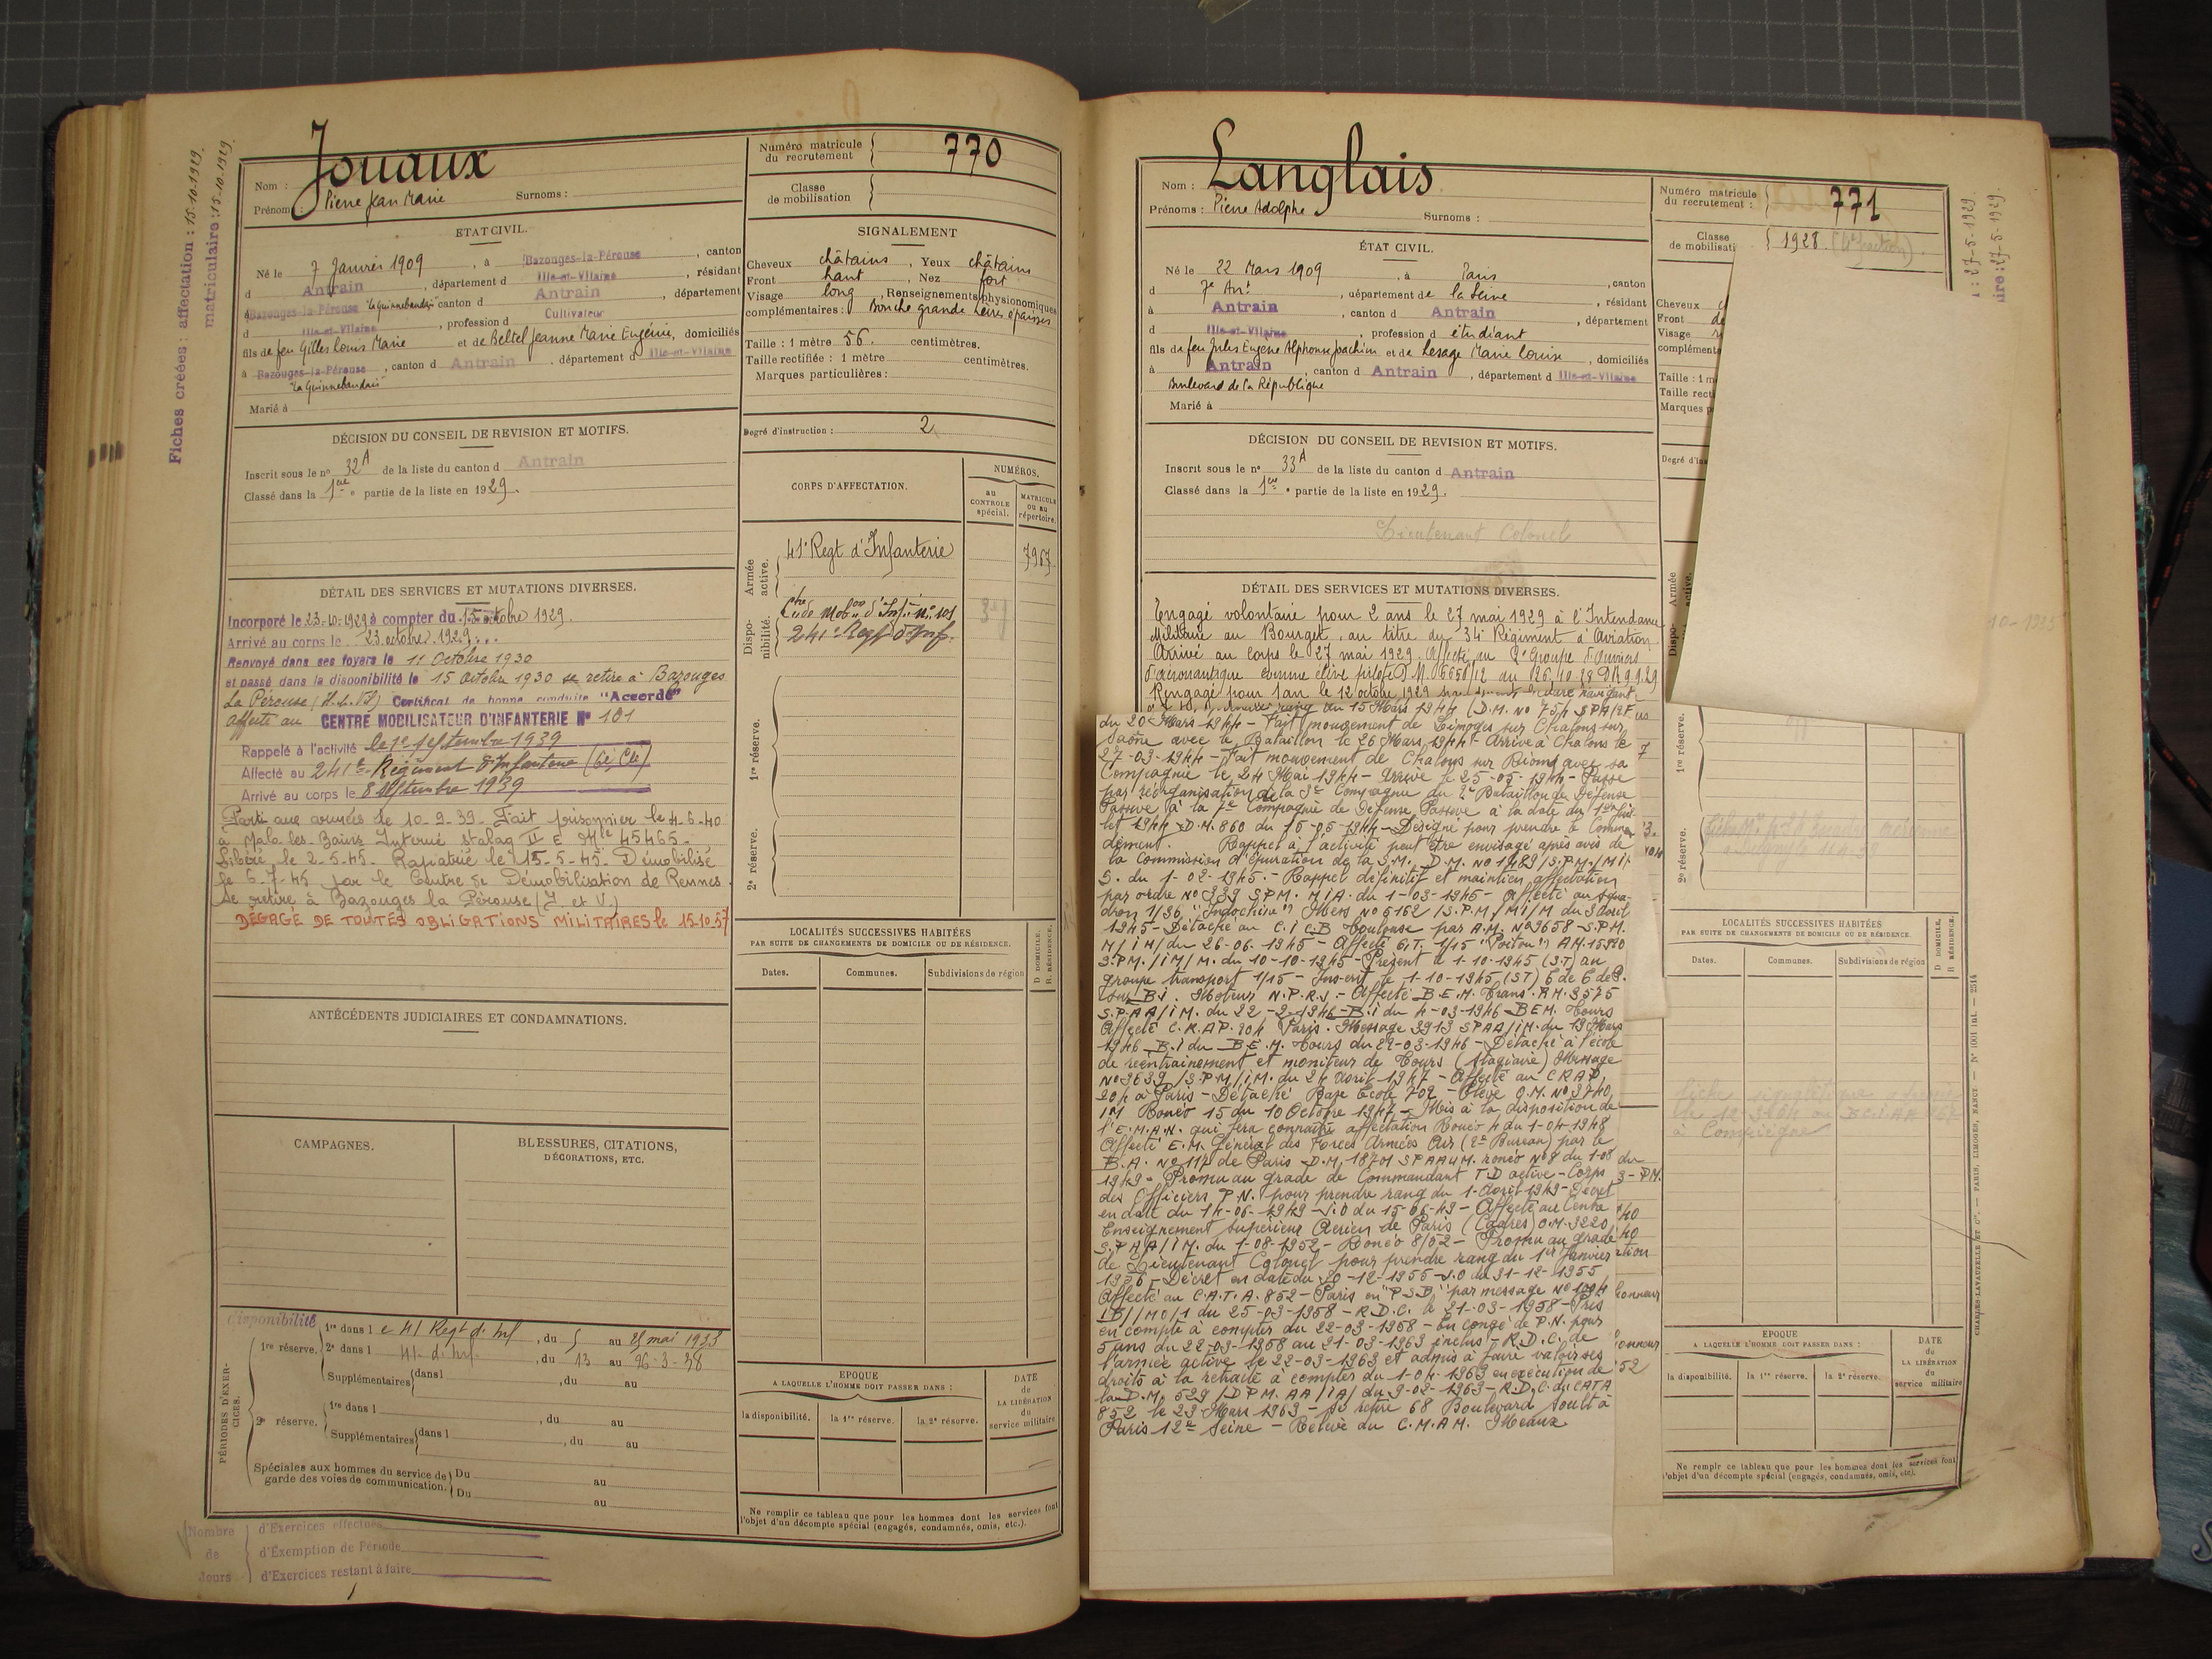 Fiches créées : affectation : 15-10-1929.
matriculaire : 15-10-1929
Nom : Jouaux
Prénoms : Pierre Jean Marie Surnoms :
ETAT CIVIL.
Né le 7 Janvier 1909, à Bazouges-la-Pérouse, canton
d Antrain, département d Ille-et-Vilaine, résidant
à Bazouges-la-Pérouse "La Guinnebaudais" canton d Antrain, département
d Ille-et-Vilaine, profession d Cultivateur
fils de feu Gilles Louis Marie et de Beltel Jeanne Marie Eugénie, domiciliés
à Bazouges-la-Pérouse, canton d Antrain, département d Ille-et-Vilaine
"La Guinnebaudais"
Marié à
DÉCISION DU CONSEIL DE REVISION ET MOTIFS.
Inscrit sous le nº 32A de la liste du canton d Antrain
Classé dans la 1ère partie de la liste en 1929.
DÉTAIL DES SERVICES ET MUTATIONS DIVERSES.
Incorporé le 23-10-1929 à compter du 15 octobre 1929.
Arrivé au corps le 23 octobre 1929
Renvoyé dans ses foyers le 11 Octobre 1930
et passé dans la disponibilité le 15 Octobre 1930 se retire à Bazouges
La Pérouse (I.&V) Certificat de bonne conduite "Accordé"
affecté au CENTRE MOBILISATEUR D'INFANTERIE Nº 101
Rappelé à l'activité le 1er septembre 1939
Affecté au 241e Régiment d'Infanterie (6e Cie)
Arrivé au corps le 8 septembre 1939
Parti aux armées le 10-9-39. Fait prisonnier le 4-6-40
à Malo-les-Bains Interné stalag II E Mle 45465.
Libéré le 2-5-45. Rapatrié le 15-5-45. Démobilisé
le 6-7-45 par le Centre de Démobilisation de Rennes.
Se retire à Bazouges la Pérouse (I. et V.)
DÉGAGÉ DE TOUTES OBLIGATIONS MILITAIRES le 15.10.57
ANTÉCÉDENTS JUDICIAIRES ET CONDAMNATIONS.
CAMPAGNES.
BLESSURES, CITATIONS,
DÉCORATIONS, ETC.
PÉRIODES D'EXERCICES.
Disponibilité
1re réserve. 1re dans l e 41 Regt d'Inf, du 5 au 25 mai 1933
2e dans l 41 d'Inf., du 13 au 26-3-38
Supplémentaires dans l , du au
2e réserve. 1re dans l , du au
Supplémentaires dans l , du au
Spéciales aux hommes du service de garde des voies de communication. Du au
Du au
Nombre de Jours
d'Exercices effectués
d'Exemption de Période
d'Exercices restant à faire
Numéro matricule du recrutement 770
Classe de mobilisation
SIGNALEMENT
Cheveux châtains, Yeux châtains
Front haut, Nez fort
Visage long, Renseignements physionomiques
complémentaires : Bouche grande Lèvres épaisses
Taille : 1 mètre 56. centimètres.
Taille rectifiée : 1 mètre centimètres.
Marques particulières :
Degré d'instruction : 2
CORPS D'AFFECTATION.
NUMÉROS.
au CONTROLE spécial.
MATRICULE ou au répertoire.
Armée active.
41e Regt d'Infanterie 7967
Disponibilité.
Ctre de Mobon d'Inf. Nº 101
241e Regt d'Inf.
1re réserve.
2e réserve.
LOCALITÉS SUCCESSIVES HABITÉES
PAR SUITE DE CHANGEMENTS DE DOMICILE OU DE RÉSIDENCE.
D DOMICILE.
R RÉSIDENCE.
Dates. Communes. Subdivisions de région
EPOQUE
A LAQUELLE L'HOMME DOIT PASSER DANS :
DATE de LA LIBÉRATION du service militaire
la disponibilité. la 1re réserve. la 2e réserve.
Ne remplir ce tableau que pour les hommes dont les services font
l'objet d'un décompte spécial (engagés, condamnés, omis, etc.).
Nom : Langlais
Prénoms : Pierre Adolphe Surnoms :
ÉTAT CIVIL.
Né le 22 Mars 1909, à Paris, canton
d 7e Art, département de la Seine, résidant
à Antrain, canton d Antrain, département
d Ille-et-Vilaine, profession d étudiant
fils de feu Jules Eugène Alphonse Joachim et de Lesage Marie Louise, domiciliés
à Antrain, canton d Antrain, département d Ille-et-Vilaine
Boulevard de la République
Marié à
DÉCISION DU CONSEIL DE REVISION ET MOTIFS.
Inscrit sous le nº 33A de la liste du canton d Antrain
Classé dans la 1ère partie de la liste en 1929.
Lieutenant Colonel
DÉTAIL DES SERVICES ET MUTATIONS DIVERSES.
Engagé volontaire pour 2 ans le 27 mai 1929 à l'Intendance
Militaire au Bourget, au titre du 34e Régiment d'Aviation
Arrivé au corps le 27 mai 1929. Affecté au 2e Groupe d'Ouvriers
d'aéronautique comme élève pilote
Rengagé pour 1 an le 12 octobre 1929
rang du 15 Mars 1944 (D.M. Nº 754 SPA/2F
du 20 Mars 1944 - Fait mouvement de Limoges sur Chalons sur
Saône avec le Bataillon le 26 Mars 1944 - Arrivé à Chalons le
27-03-1944 - Fait mouvement de Chalons sur Riom avec sa
Compagnie le 24 Mai 1944 - Arrivé le 25-05-1944 - Passe
par réorganisation de la 3e Compagnie du 2e Bataillon de Défense
Passive à la 7e Compagnie de Défense Passive à la date du 1er Juil-
let 1944 - D.M. 860 du 16-05-1944 - Désigné pour prendre le Comman
dement. Rappel à l'activité peut être envisagé après avis de
la Commission d'épuration de la S.M. D.M. Nº 1489/S.P.M./MI/
S. du 1-02-1945. - Rappel définitif et maintien affectation
par ordre Nº 339 SPM. MIA. du 1-03-1945 - Affecté au squa-
dron 1/36 "Indochine" Mers Nº 6162 /S.P.M./MI/M du 3 avril
1945 - Détaché au C.I.C.B Toulouse par A.M. Nº 9658 - S.P.M.
M/IM/ du 26-06-1945 - Affecté G.T. 1/15 "Poitou" AM.15920
S.P.M./IM/M. du 10-10-1945 - Présent le 1-10-1945 (S.T) au
groupe transport 1/15 - Inscrit le 1-10-1945 (ST) 6 de 6 de P.
sur B.I. Moteur N.P.R.J. - Affecté B.E.M. Trans. AM. 3575
S.P.AA/IM. du 22-2-1946 - B.I du 4-03-1946 BEM. Tours
Affecté C.R.A.P. 204 Paris. Message 3913 SPAA/IM. du 19 Mars
1946 B.I du B.E.M. Tours du 29-03-1946 - Détaché à l'école
de réentrainement et moniteur de Tours (stagiaire) Message
Nº 3639 /S.P.M/IM. du 24 Avril 1947 - Affecté au C.R.A.P.
204 à Paris - Détaché Base Ecole 702 - Elève O.M. Nº 3740
IM Ronéo 15 du 10 Octobre 1947 - Mis à la disposition de
l'E.M.A.N. qui fera connaître affectation Ronéo 4 du 1-04-1948
Affecté E.M. Général des Forces Armées Air (2e Bureau) par le
B.A. Nº 117 de Paris D.M. 18701 SPAAUM. ronéo Nº 8 du 1-08
1949 - Promu au grade de Commandant T.D active - Corps
des Officiers P.N. pour prendre rang du 1-Avril-1949 - Décret
en date du 14-06-1949 - J.O du 15-06-49 - Affecté au Centre
Enseignement Supérieur Aérien de Paris (Cadres) O.M. 3220
S.P.AA/IM. du 1-08-1952 - Ronéo 8/52 - Promu au grade
de Lieutenant Colonel pour prendre rang du 1er Janvier
1956 - Décret en date du 30-12-1955 - J.O du 31-12-1955
Affecté au C.A.T.A. 852 - Paris en "P.S.D" par message Nº 1094
1B//MO/1 du 25-03-1958 - R.D.C. le 21-03-1958 - Pris
en compte à compter du 22-03-1958 - En congé de P.N. pour
5 ans du 22-03-1958 au 21-03-1963 inclus - R.D.C. de
l'armée active le 22-03-1963 et admis à faire valoir ses
droits à la retraite à compter du 1-04-1963 en exécution de
la D.M. 529 /D P M. AA/IA/ du 9-02-1963 - R.D.C. du CATA
852 le 23 Mars 1963 - Se retire 68 Boulevard Soult à
Paris 12e Seine - Relevé du C.M.A.M. Meaux
Numéro matricule du recrutement : 771
Classe de mobilisati 1928
27-5-1929
27-5-1929.
Cheveux
Front
Visage
complément
Taille : 1 m
Taille rect
Marques p
Degré d'ins
Armée active.
Dispo-
1re réserve.
2e réserve.
LOCALITÉS SUCCESSIVES HABITÉES
PAR SUITE DE CHANGEMENTS DE DOMICILE OU DE RÉSIDENCE.
D DOMICILE.
R RÉSIDENCE.
Dates. Communes. Subdivisions de région
à Compiègne
EPOQUE
A LAQUELLE L'HOMME DOIT PASSER DANS :
DATE de LA LIBÉRATION du service militaire
la disponibilité. la 1re réserve. la 2e réserve.
Ne remplir ce tableau que pour les hommes dont les services font
l'objet d'un décompte spécial (engagés, condamnés, omis, etc).
CHARLES-LAVAUZELLE ET Cie. — PARIS, LIMOGES, NANCY